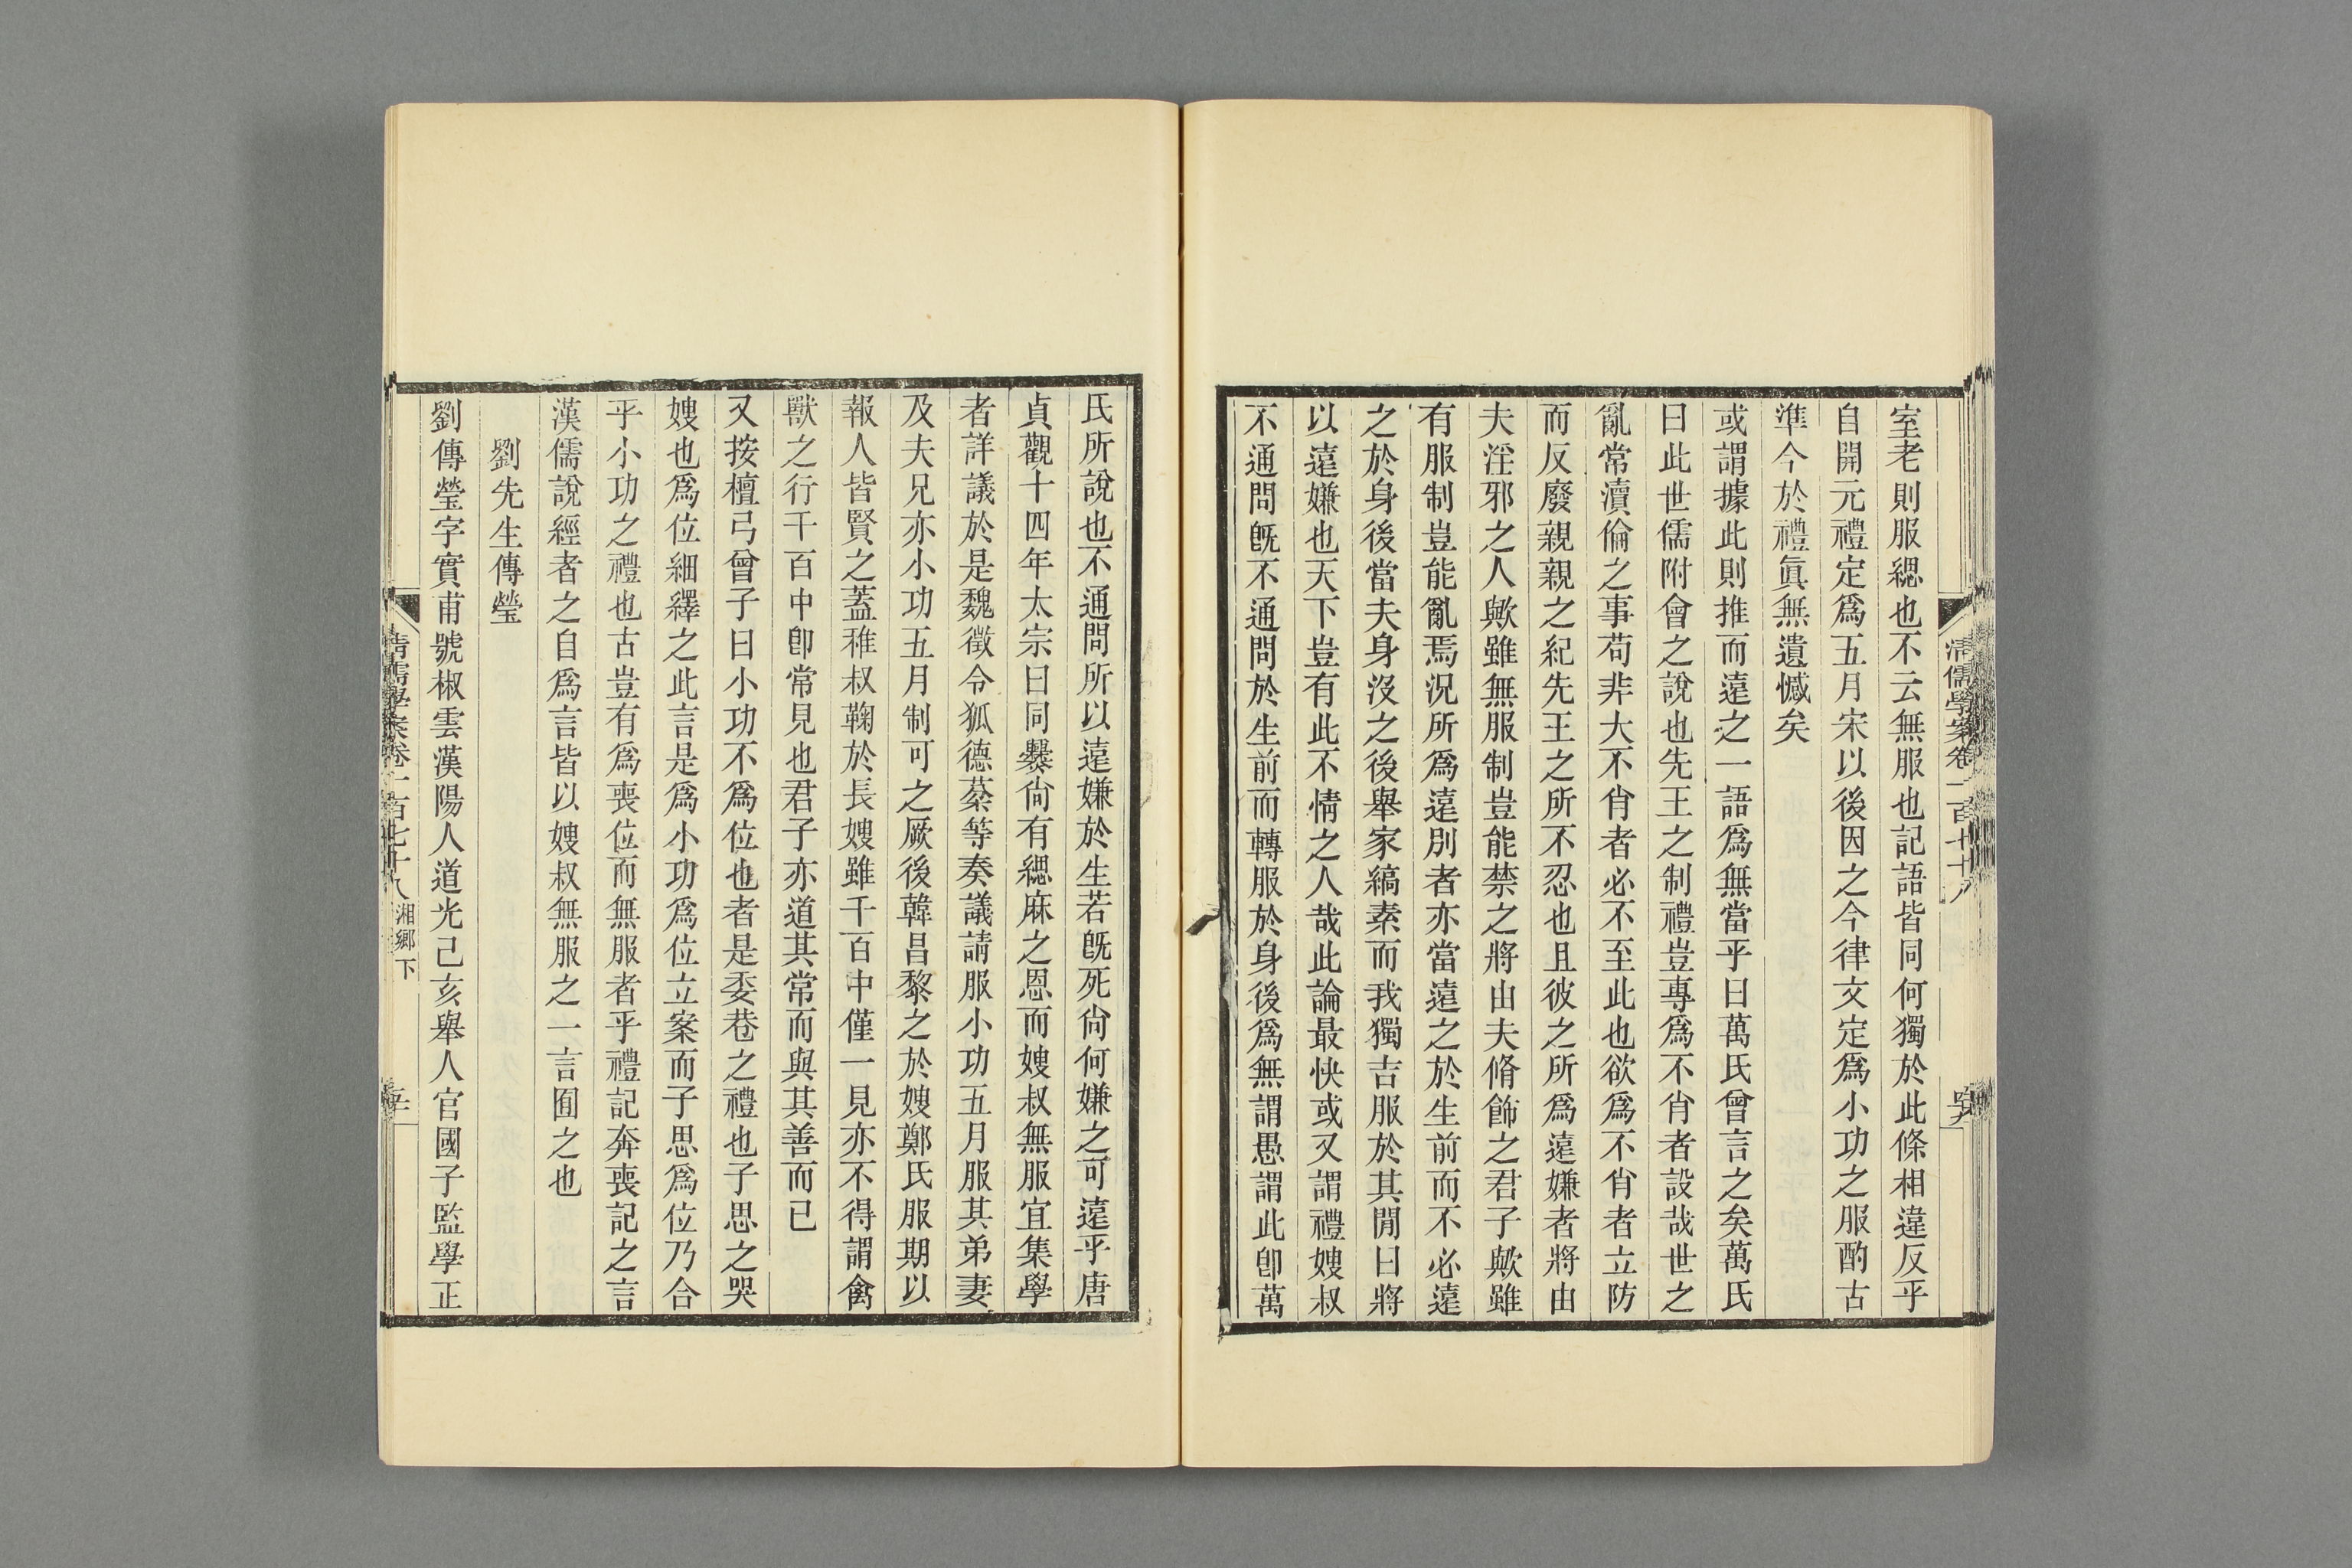 室老則服緦也不云無服也記語皆同何獨於此條相違反乎
自開元禮定爲五月宋以後因之今律文定爲小功之服酌古
準今於禮眞無遺憾矣
或謂據此則推而遠之一語爲無當乎曰萬氏曾言之矣萬氏
曰此世儒附會之說也先王之制禮豈專爲不肖者設哉世之
亂常瀆倫之事苟非大不肖者必不至此也欲爲不肖者立防
而反廢親親之紀先王之所不忍也且彼之所爲遠嫌者將由
夫淫邪之人歟雖無服制豈能禁之將由夫脩飾之君子歟雖
有服制豈能亂焉況所爲遠別者亦當遠之於生前而不必遠
之於身後當夫身沒之後舉家縞素而我獨吉服於其閒曰將
以遠嫌也天下豈有此不情之人哉此論最快或又謂禮嫂叔
不通問旣不通問於生前而轉服於身後爲無謂愚謂此卽萬
清儒學案卷一百七十八
氏所說也不通問所以遠嫌於生若旣死尙何嫌之可遠乎唐
貞觀十四年太宗曰同爨尙有緦麻之恩而嫂叔無服宜集學
者詳議於是魏徵令狐德棻等奏議請服小功五月服其弟妻
及夫兄亦小功五月制可之厥後韓昌黎之於嫂鄭氏服期以
報人皆賢之蓋稚叔鞠於長嫂雖千百中僅一見亦不得謂禽
獸之行千百中卽常見也君子亦道其常而與其善而已
又按檀弓曾子曰小功不爲位也者是委巷之禮也子思之哭
嫂也爲位細繹之此言是爲小功爲位立案而子思爲位乃合
乎小功之禮也古豈有爲喪位而無服者乎禮記奔喪記之言
漢儒說經者之自爲言皆以嫂叔無服之一言囿之也
劉先生傳瑩
劉傳瑩字實甫號椒雲漢陽人道光己亥舉人官國子監學正
清儒學案卷一百七十八 湘鄉下